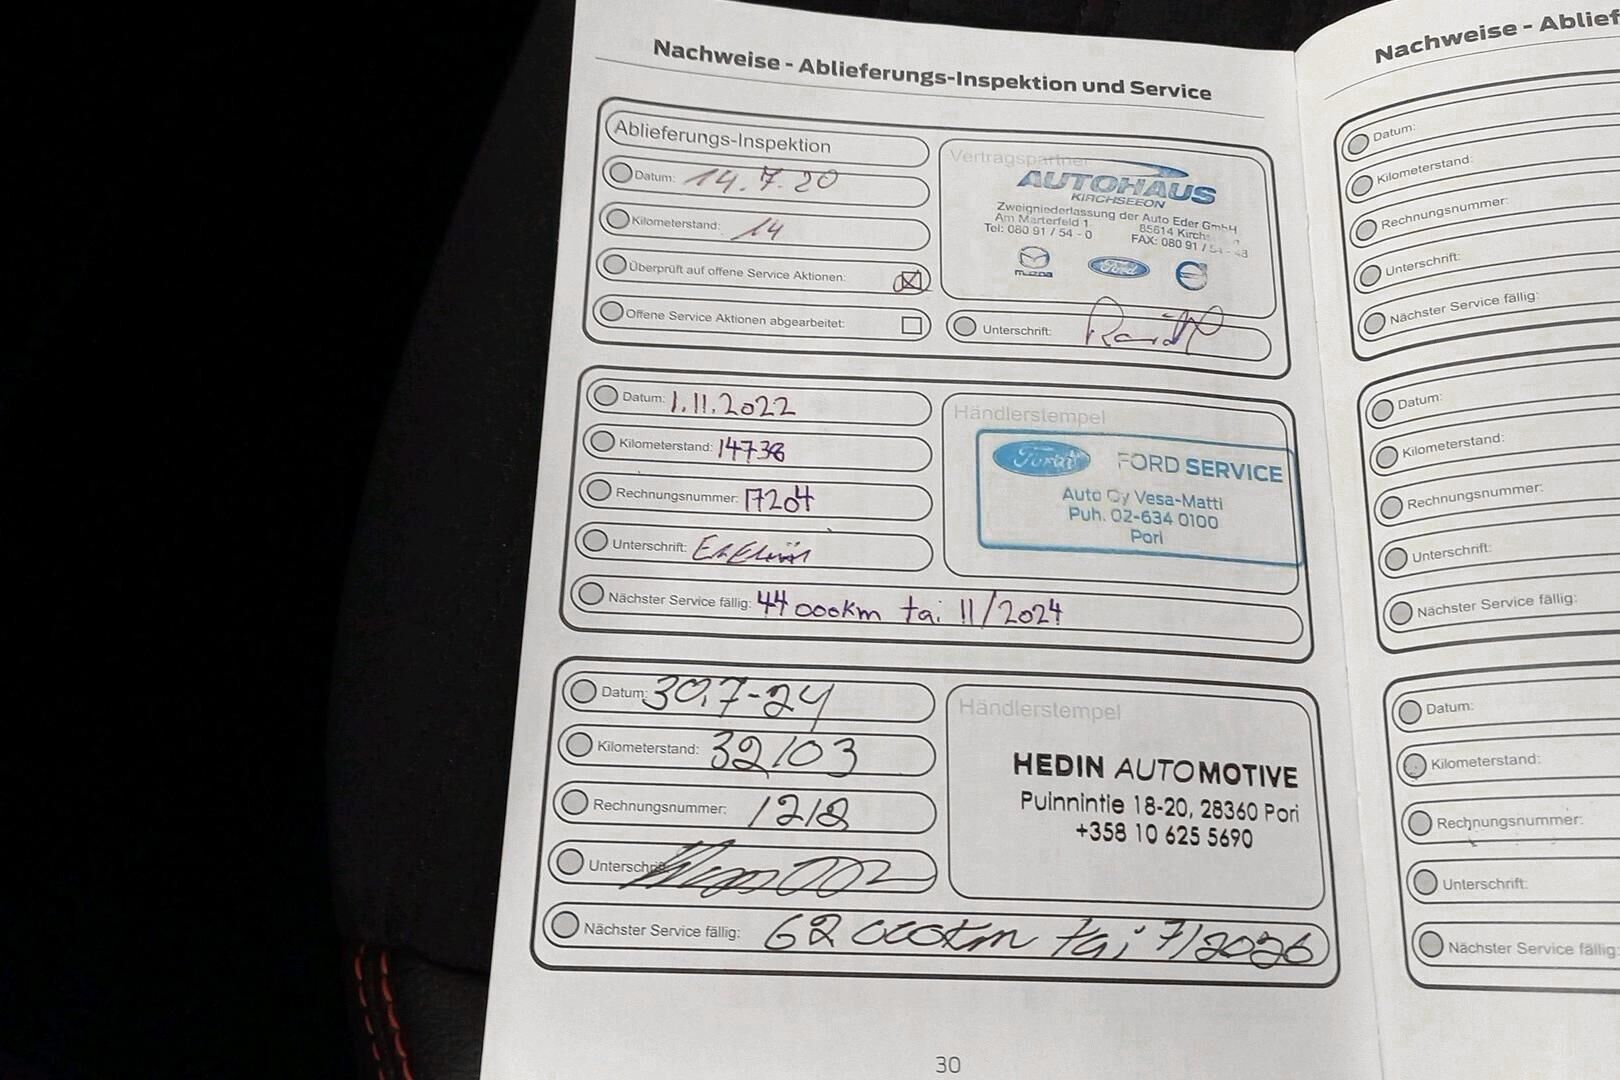 Nachweise - Ablieferungs-Inspektion und Service
Ablieferungs-Inspektion
Datum: 14.7.20
Kilometerstand: 14
Überprüft auf offene Service Aktionen:
Offene Service Aktionen abgearbeitet:
Vertragspartner
AUTOHAUS
KIRCHSEEON
Zweigniederlassung der Auto Eder GmbH
Am Marterfeld 1 85614
Tel: 080 91 / 54 - 0 FAX: 080 91 /
mazda Ford
Unterschrift:
Datum: 1.11.2022
Kilometerstand: 14738
Rechnungsnummer: 17204
Unterschrift:
Nächster Service fällig: 44 000km tai 11/2024
Händlerstempel
Ford FORD SERVICE
Auto Oy Vesa-Matti
Puh. 02-634 0100
Pori
Datum: 30.7-24
Kilometerstand: 32103
Rechnungsnummer: 1218
Unterschrift:
Nächster Service fällig: 62 000km tai 7/2026
Händlerstempel
HEDIN AUTOMOTIVE
Puinnintie 18-20, 28360 Pori
+358 10 625 5690
30
Nachweise - Ablief
Datum:
Kilometerstand:
Rechnungsnummer:
Unterschrift:
Nächster Service fällig:
Datum:
Kilometerstand:
Rechnungsnummer:
Unterschrift:
Nächster Service fällig:
Datum:
Kilometerstand:
Rechnungsnummer:
Unterschrift:
Nächster Service fällig: